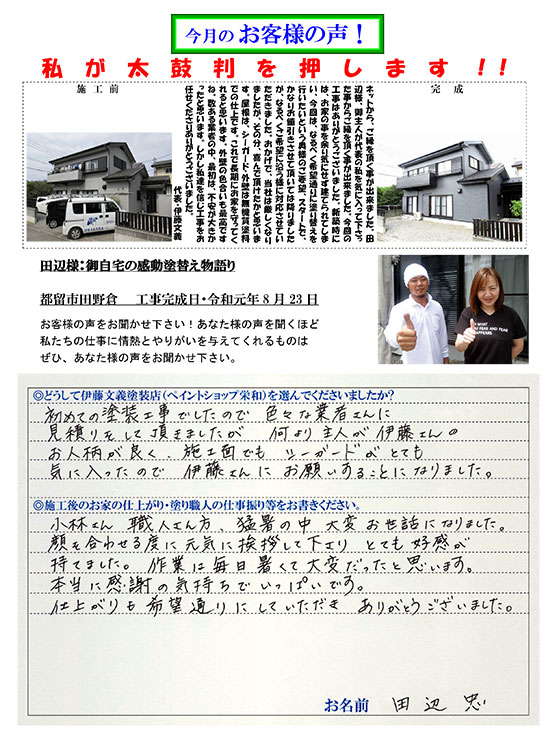 今月の お客様の声！
私が太鼓判を押します!!
施工前
完成
ネットから、ご縁を頂く事が出来ました、田
辺様、御主人が代表の私を気に入って下さっ
た事からご縁を頂く事が出来ました。今回の
工事はありがとうございました。新築時に
は、お家の事を余り気にせず建てられてしま
い、今回は、なるべく希望通りに塗り替えを
行いたいという奥様のご要望、スタートで、
かなりお値引きさせて頂いては降りました
が、なるべくご希望に沿う様に対応させてい
ただきました。おかげで、当社は厳しくなり
ましたが、その分、喜んで頂けたかと思いま
す。屋根は、シーガード・外壁は無機質塗料
での仕上です。これで長期にお家を守ってく
れると思います。外壁の色合いも最高です
ね。数ある業者の中、最初は、不安が大きか
ったと思います。しかし私達を信じ工事をお
任せくださりありがとうございました。
代表：伊藤文義
田辺様：御自宅の感動塗替え物語り
都留市田野倉　工事完成日・令和元年8月23日
お客様の声をお聞かせ下さい！あなた様の声を聞くほど
私たちの仕事に情熱とやりがいを与えてくれるものは
ぜひ、あなた様の声をお聞かせ下さい。
◎どうして伊藤文義塗装店（ペイントショップ栄和）を選んでくださいましたか？
初めての塗装工事でしたので 色々な業者さんに
見積りをして頂きましたが 何より主人が伊藤さんの
お人柄が良く、施工面でも シーガードがとても
気に入ったので 伊藤さんに お願いすることになりました。
◎施工後のお家の仕上がり・塗り職人の仕事振り等をお書きください。
小林さん 職人さん方、猛暑の中 大変お世話になりました。
顔を合わせる度に元気に挨拶して下さり とても好感が
持てました。作業は毎日暑くて大変だったと思います。
本当に感謝の気持ちでいっぱいです。
仕上がりも希望通りにしていただき ありがとうございました。
お名前 田辺 忠